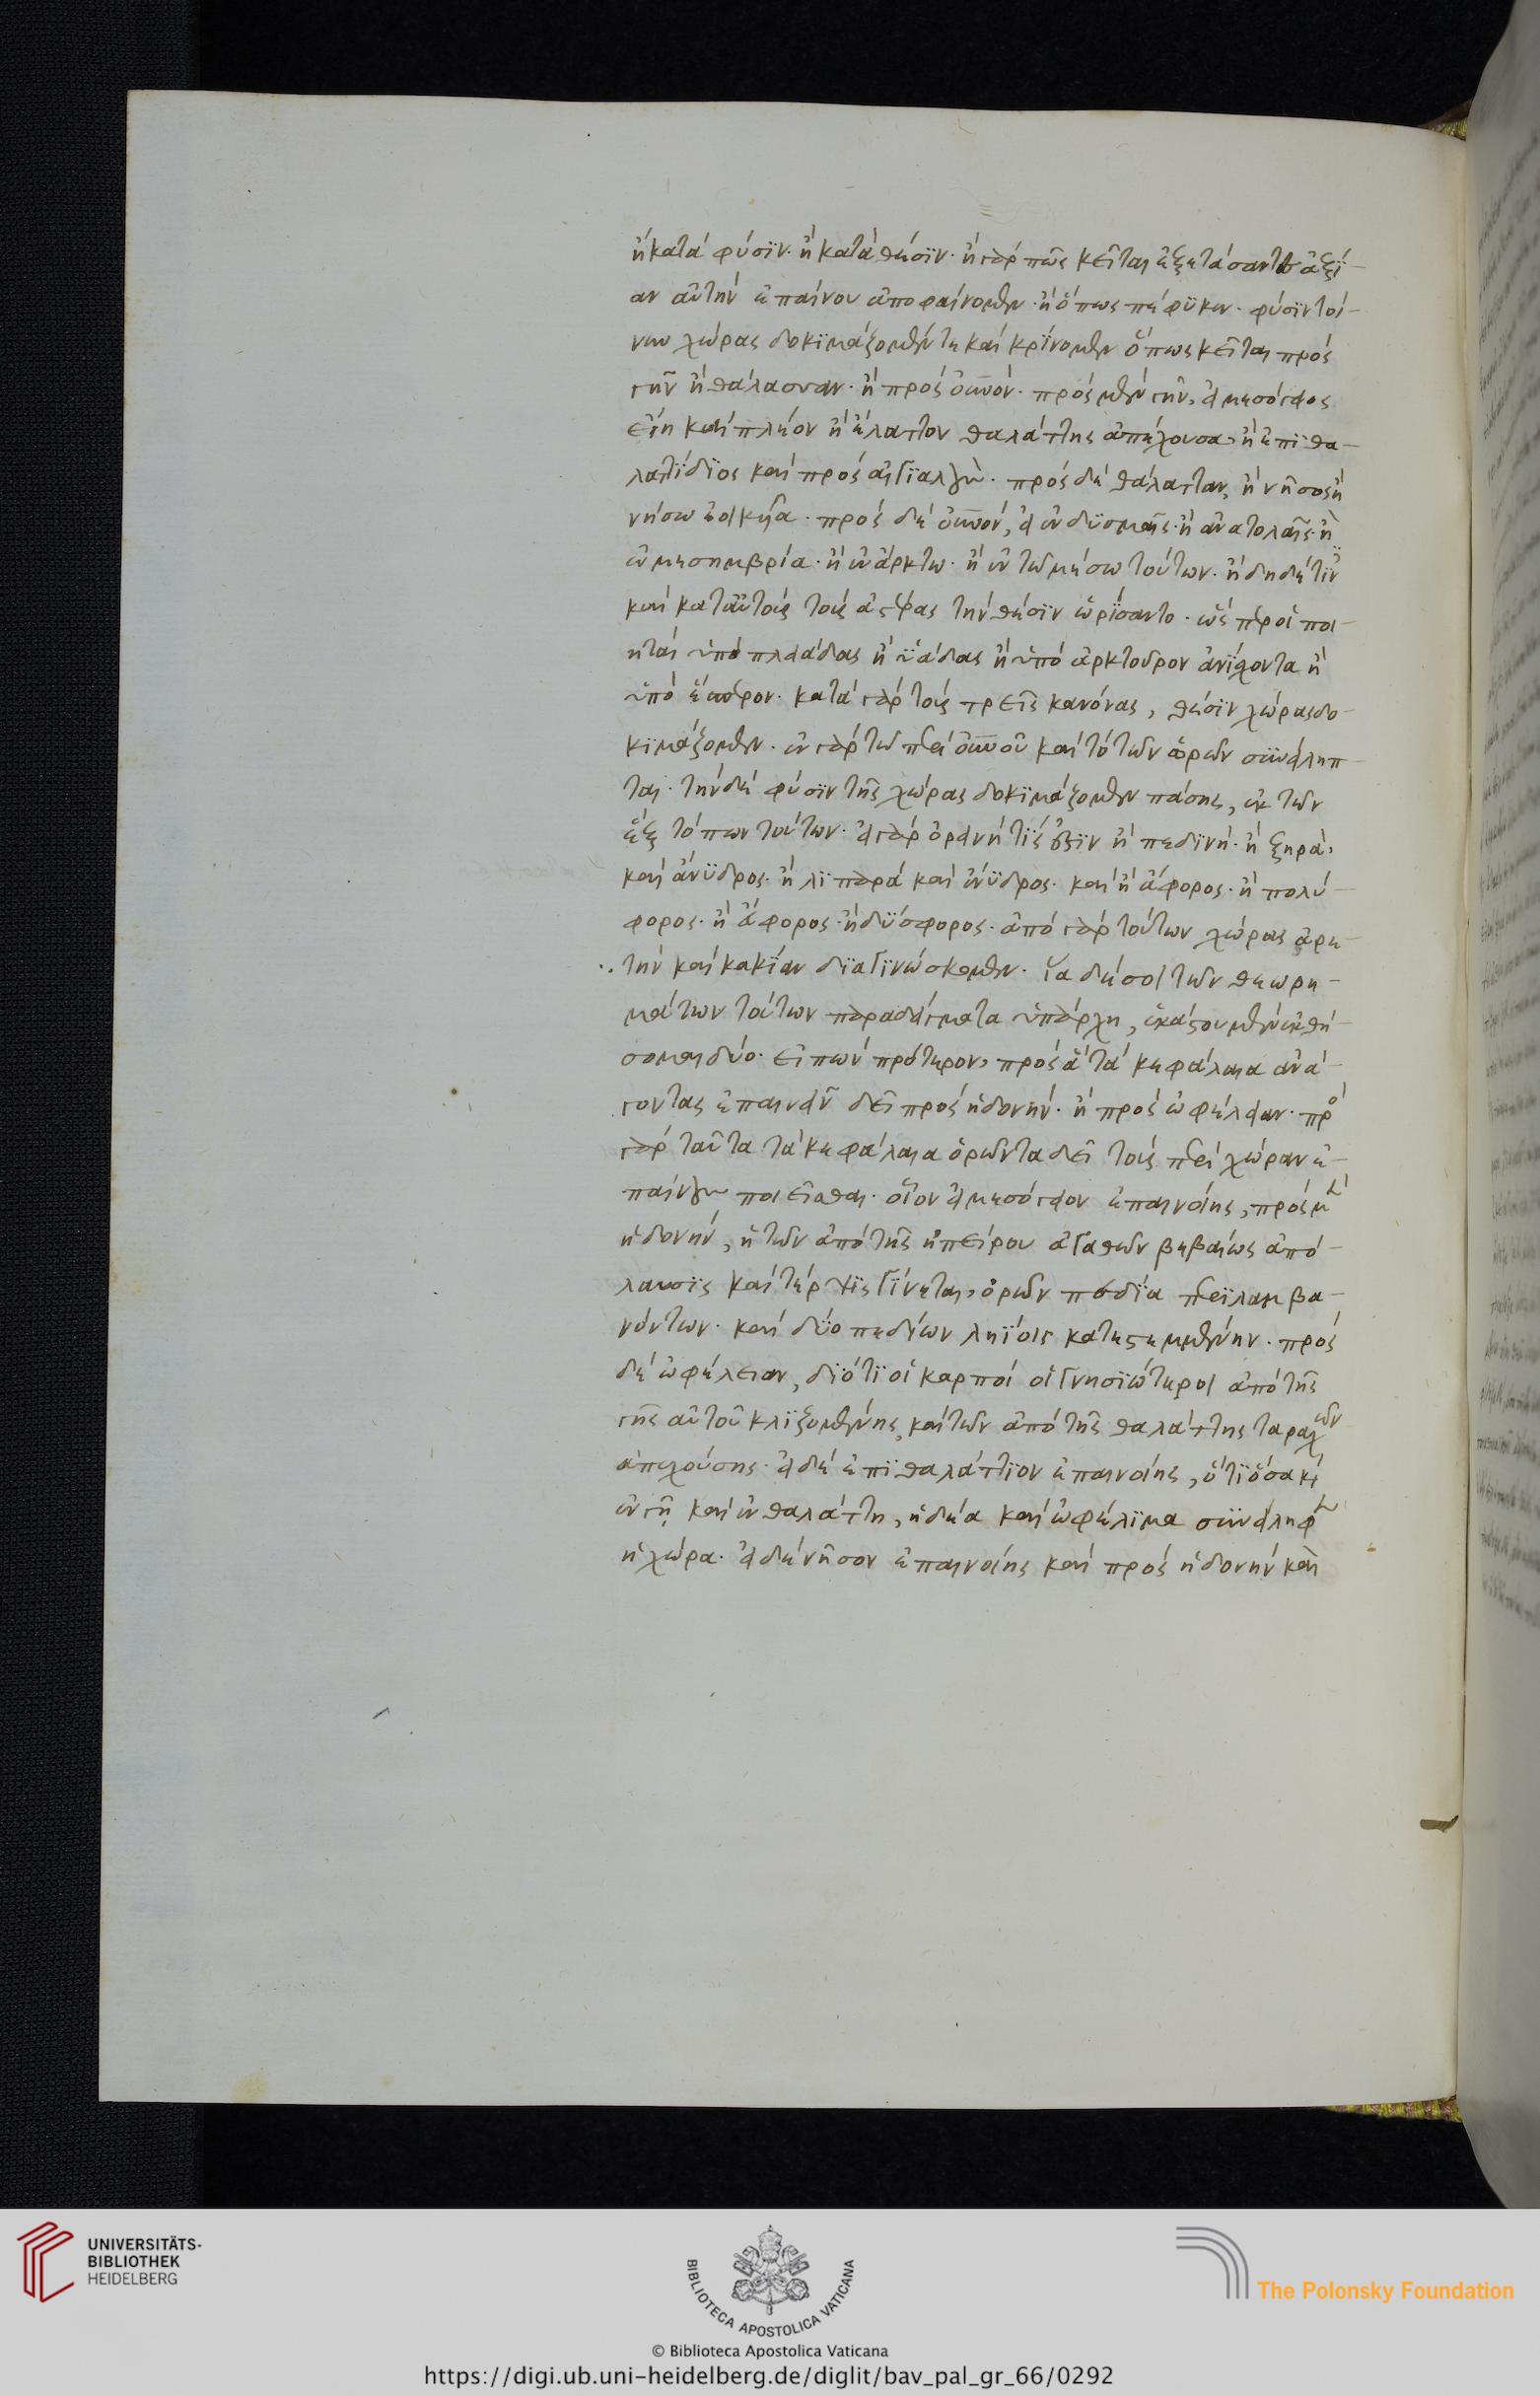 ἢ κατὰ φύσιν· ἢ κατὰ θέσιν· ἢ γὰρ πῶς κεῖται ἐξετάσαντες ἀξί-
αν αὐτὴν ἐπαίνου ἀποφαίνομεν· ἢ ὅπως πέφυκεν· φύσιν τοί-
νυν χώρας δοκιμάζομέν τε καὶ κρίνομεν ὅπως κεῖται πρὸς
γῆν ἢ θάλασσαν· ἢ πρὸς οὐνον· πρὸς μὲν γῆν, εἰ μεσόγειος
εἴη καὶ πλέον ἢ ἔλαττον θαλάττης ἀπέχουσα· ἢ ἐπιθα-
λαττίδιος καὶ πρὸς αἰγιαλῶν· πρὸς δὲ θάλατταν, ἢ νῆσος ἢ
νήσω ἐοικυῖα· πρὸς δὲ οὐνον, εἰ ἐν δυσμαῖς· ἢ ἀνατολαῖς· ἢ
ἐν μεσημβρία· ἢ ἐν ἄρκτω· ἢ ἐν τῶ μέσω τούτων· ἤδη δέ τιν
καὶ κατ' αὐτοὺς τοὺς ἀστέρας τὴν θέσιν ὡρίσαντο· ὥσπερ οἱ ποι-
ηταὶ ὑπὸ πλειάδας ἢ ὑάδας ἢ ὑπὸ ἀρκτοῦρον ἀνίσχοντα ἢ
ὑπὸ ἕσπερον· κατὰ γὰρ τοὺς τρεῖς κανόνας, θέσιν χώρας δο-
κιμάζομεν· ἐν γὰρ τῶ περὶ οὐνοῦ καὶ τὸ τῶν ὡρῶν συνείληπ-
ται· τὴν δὲ φύσιν τῆς χώρας δοκιμάζομεν πάσης, ἐκ τῶν
ἓξ τόπων τούτων· εἰ γὰρ ὀρεινή τίς ἐστιν ἢ πεδινή· ἢ ξηρὰ,
καὶ ἄνυδρος· ἢ λιπαρὰ καὶ ἔνυδρος· καὶ ἢ ἄφορος· ἢ πολύ-
φορος· ἢ εὔφορος· ἢ δύσφορος· ἀπὸ γὰρ τούτων χώρας ἀρε-
τὴν καὶ κακίαν διαγινώσκομεν· ἵνα δέ σοι τῶν θεωρη-
μάτων τούτων παραδείγματα ὑπάρχη, ἑκάστου μὲν ἐκθή-
σομαι δύο· εἰπὼν πρότερον, πρὸς ἃ τὰ κεφάλαια ἀνά-
γοντας ἐπαινεῖν δεῖ πρὸς ἡδονήν· ἢ πρὸς ὠφέλειαν· πρὸ
γὰρ ταῦτα τὰ κεφάλαια ὁρῶντα δεῖ τοὺς περὶ χώραν ἐ-
παίνων ποιεῖσθαι· οἷον εἰ μεσόγειον ἐπαινοίης, πρὸς μὲν
ἡδονὴν, ἡ τῶν ἀπὸ τῆς ἠπείρου ἀγαθῶν βεβαίως ἀπό-
λαυσις καὶ τέρψις γίνεται, ὀρῶν πεδία περιλαμβα-
νόντων· καὶ δύο πεδίων ληΐοις κατεστεμμένην· πρὸς
δὲ ὠφέλειαν, διότι οἱ καρποὶ οἱ γνησιώτεροι ἀπὸ τῆς
γῆς αὐτοῦ κλιζομένης, καὶ τῶν ἀπὸ τῆς θαλάττης ταραχῶν
ἀπεχούσης· εἰ δὲ ἐπιθαλάττιον ἐπαινοίης, ὅτι ὅσα κὲ
ἐν γῇ καὶ ἐν θαλάττη, ἡδέα καὶ ὠφέλιμα συνείληφεν
ἡ χώρα· εἰ δὲ νῆσον ἐπαινοίης καὶ πρὸς ἡδονὴν καὶ
UNIVERSITÄTS-
BIBLIOTHEK
HEIDELBERG
BIBLIOTECA APOSTOLICA VATICANA
The Polonsky Foundation
© Biblioteca Apostolica Vaticana
https://digi.ub.uni-heidelberg.de/diglit/bav_pal_gr_66/0292